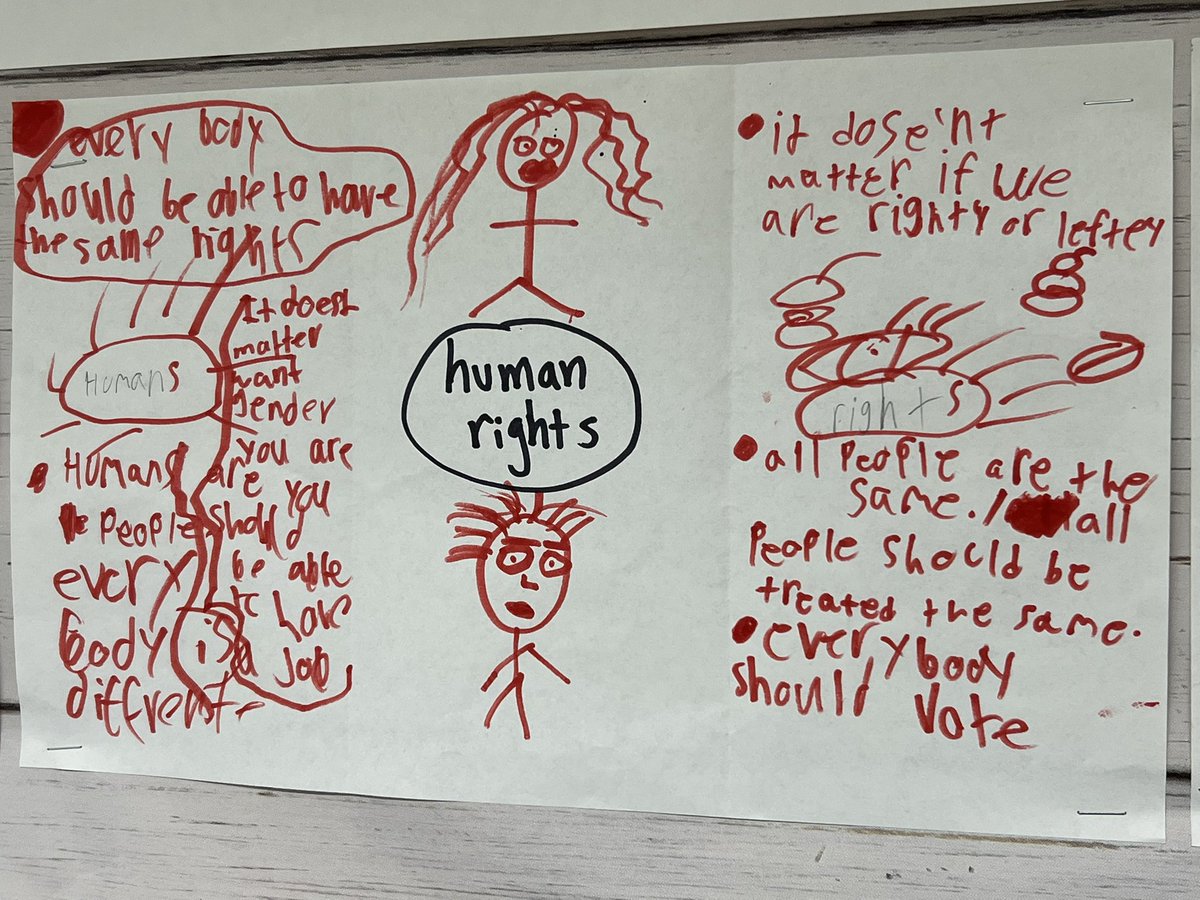 every body
should be able to have
the same rights
Humans
It doest
matter
want
gender
you are
are you
should
be able
to have
a job
Humans
People
every
body is
diffrent
human
rights
it dose'nt
matter if we
are righty or leftey
rights
all People are the
same. all
People should be
treated the same.
everybody
should vote